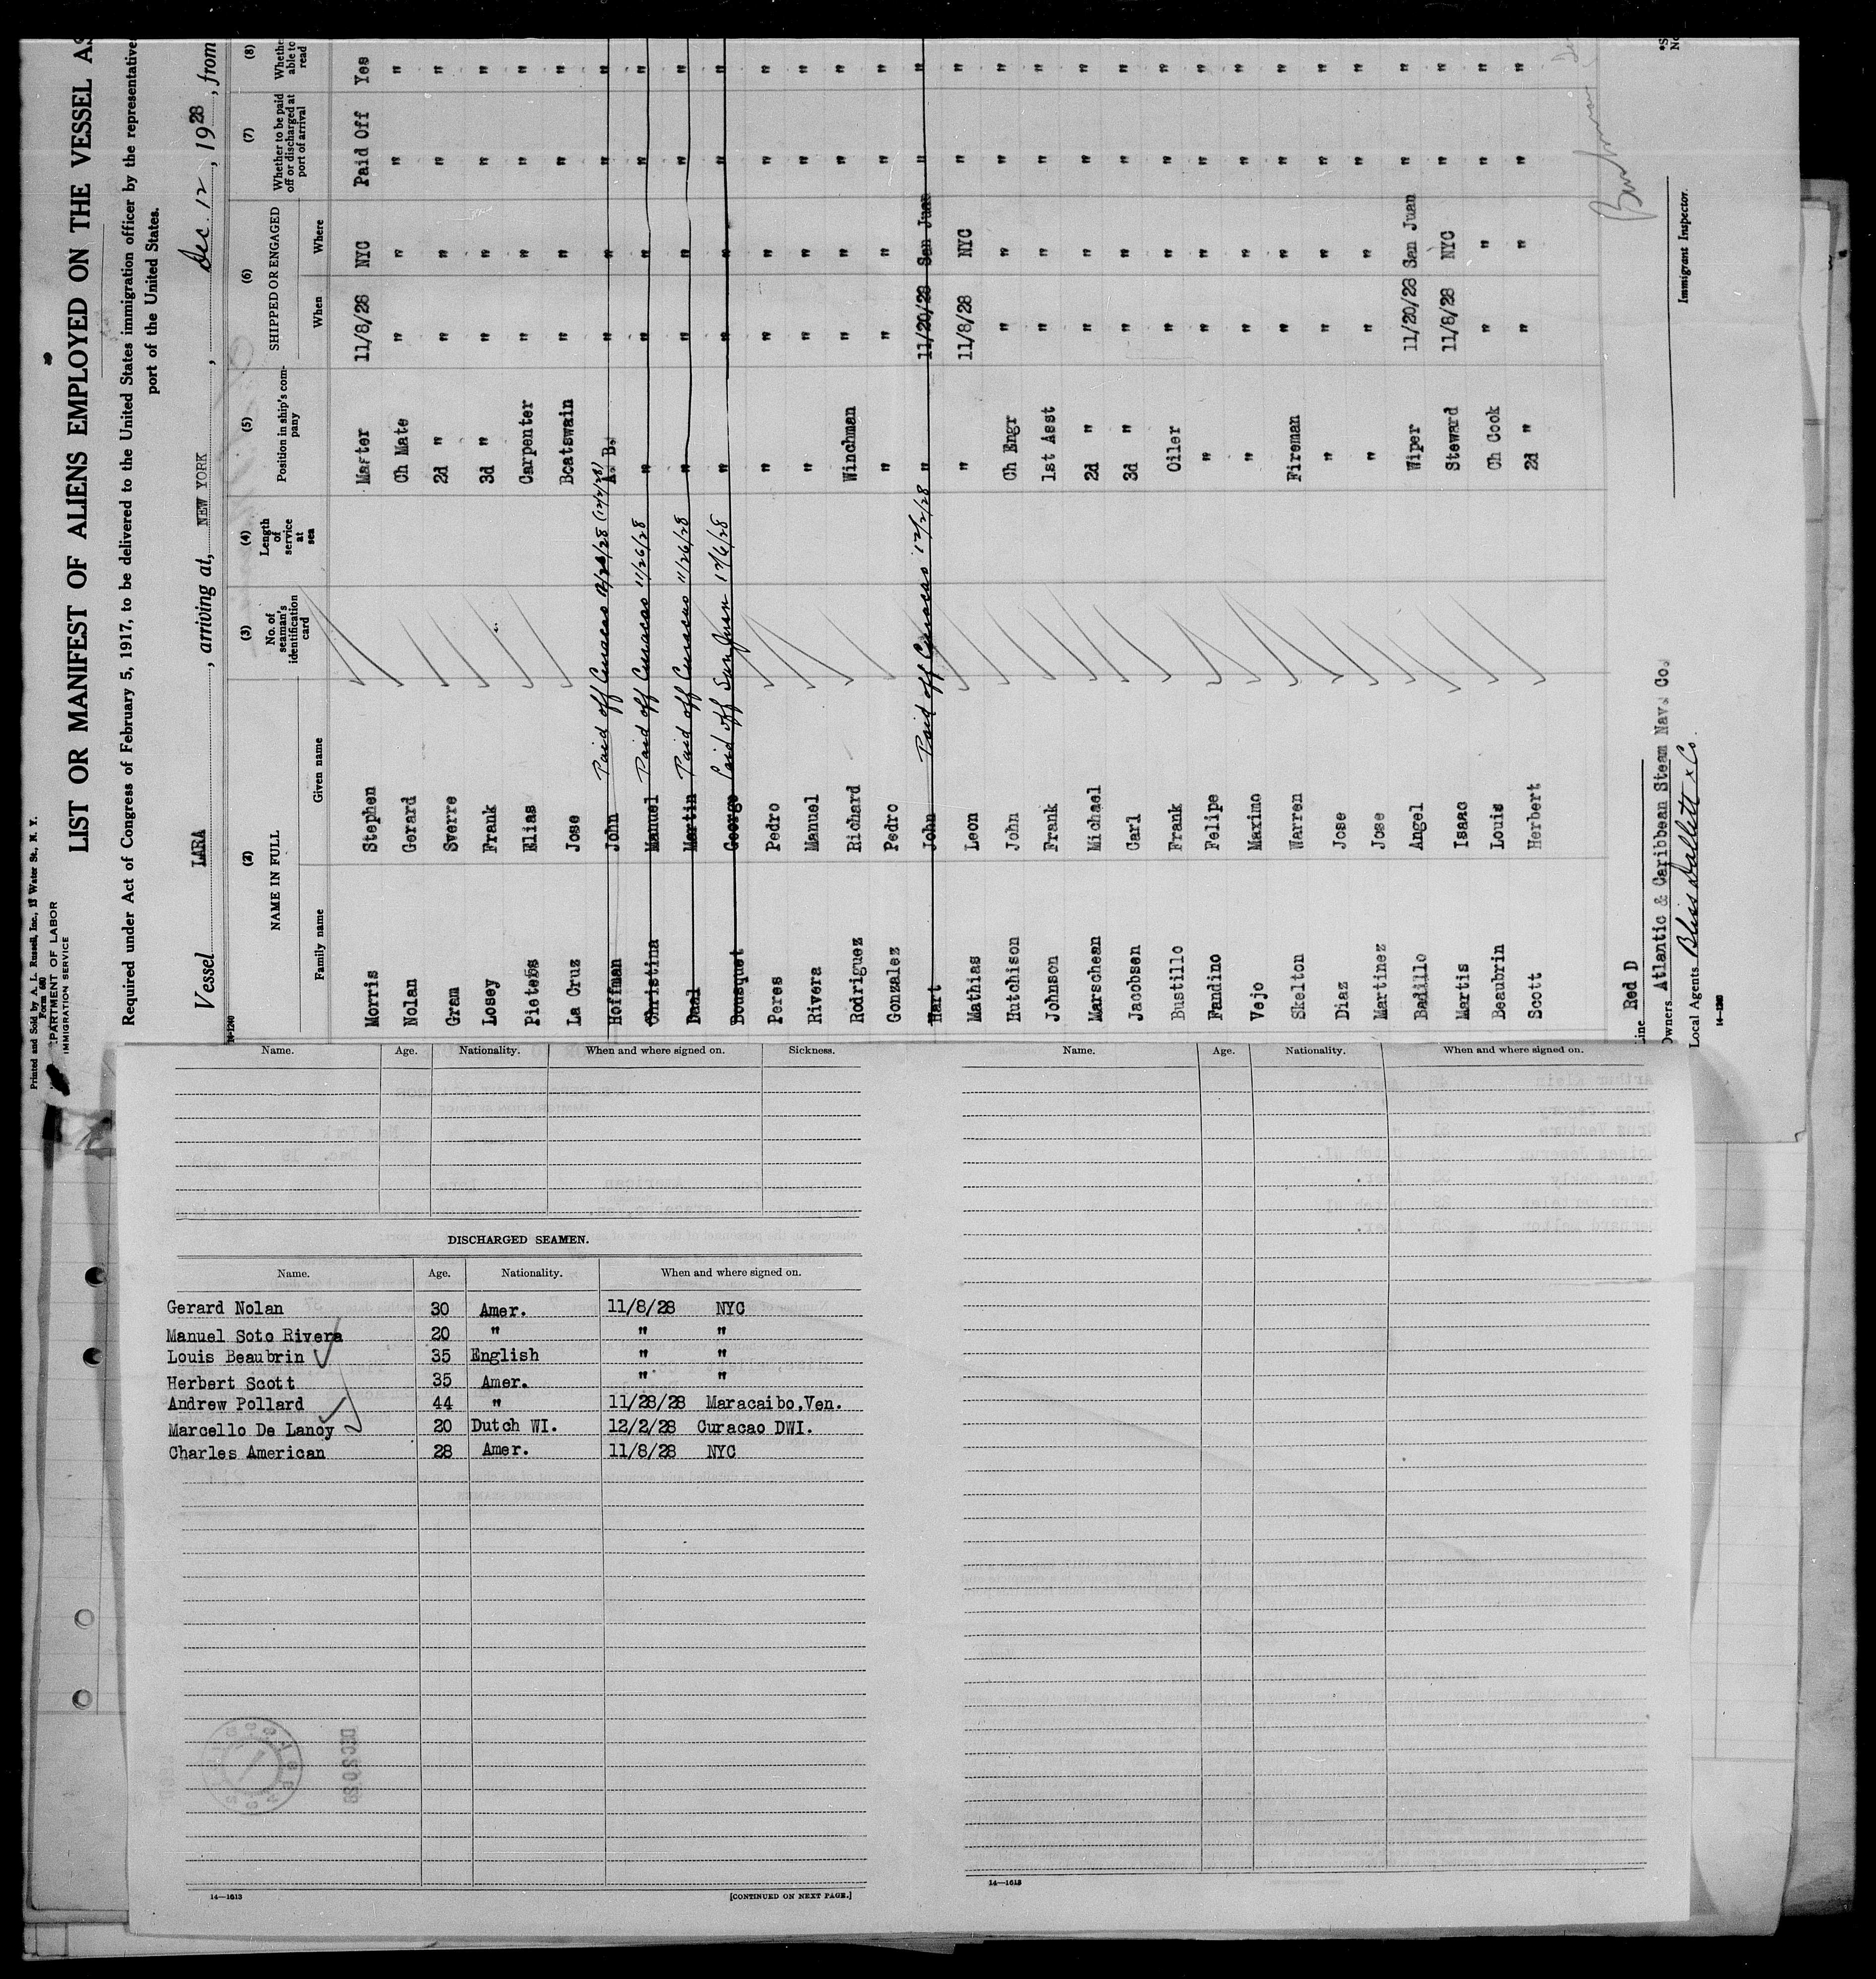 Printed and Sold by A. L. Russell, Inc., 13 Water St., N. Y.
Form 680
PARTMENT OF LABOR
IMMIGRATION SERVICE
LIST OR MANIFEST OF ALIENS EMPLOYED ON THE VESSEL AS
Required under Act of Congress of February 5, 1917, to be delivered to the United States immigration officer by the representative
port of the United States.
Vessel LARA, arriving at, NEW YORK, Dec. 12, 1928, from
14-1240
(2) NAME IN FULL (3) No. of seaman's identification card (4) Length of service at sea (5) Position in ship's company (6) SHIPPED OR ENGAGED (7) Whether to be paid off or discharged at port of arrival (8) Whether able to read
Family name Given name When Where
Morris Stephen Master 11/8/28 NYC Paid Off Yes
Nolan Gerard Ch Mate " " " "
Gram Sverre 2d " " " " "
Losey Frank 3d " " " " "
Pieters Elias Carpenter " " " "
La Cruz Jose Boatswain " " " "
Hoffman John Paid off Curacao (12/2/28) A. B. " " " "
Christina Manuel Paid off Curacao 11/26/28 " " " " "
Daal Martin Paid off Curacao 11/26/28 " " " " "
Bousquet George Paid off San Juan 12/6/28 " " " " "
Peres Pedro " " " " "
Rivera Manuel " " " " "
Rodriguez Richard Winchman " " " "
Gonzalez Pedro " " " " "
Hart John Paid off Curacao 12/2/28 " 11/20/28 San Juan " "
Mathias Leon " 11/8/28 NYC " "
Hutchison John Ch Engr " " " "
Johnson Frank 1st Asst " " " "
Marschean Michael 2d " " " " "
Jacobsen Carl 3d " " " " "
Bustillo Frank Oiler " " " "
Fandino Felipe " " " " "
Vejo Maximo " " " " "
Skelton Warren Fireman " " " "
Diaz Jose " " " " "
Martinez Jose " " " " "
Badillo Angel Wiper 11/20/28 San Juan " "
Martis Isaac Steward 11/8/28 NYC " "
Beaubrin Louis Ch Cook " " " "
Scott Herbert 2d " " " " "
Line Red D
Owners Atlantic & Caribbean Steam Nav. Co.
Local Agents Bliss Dallett & Co.
Immigrant Inspector.
14-1240
Name. Age. Nationality. When and where signed on. Sickness.
DISCHARGED SEAMEN.
Name. Age. Nationality. When and where signed on.
Gerard Nolan 30 Amer. 11/8/28 NYC
Manuel Soto Rivera 20 " " "
Louis Beaubrin 35 English " "
Herbert Scott 35 Amer. " "
Andrew Pollard 44 " 11/28/28 Maracaibo,Ven.
Marcello De Lanoy 20 Dutch WI. 12/2/28 Curacao DWI.
Charles American 28 Amer. 11/8/28 NYC
14—1613
[CONTINUED ON NEXT PAGE.]
Name. Age. Nationality. When and where signed on.
14—1613